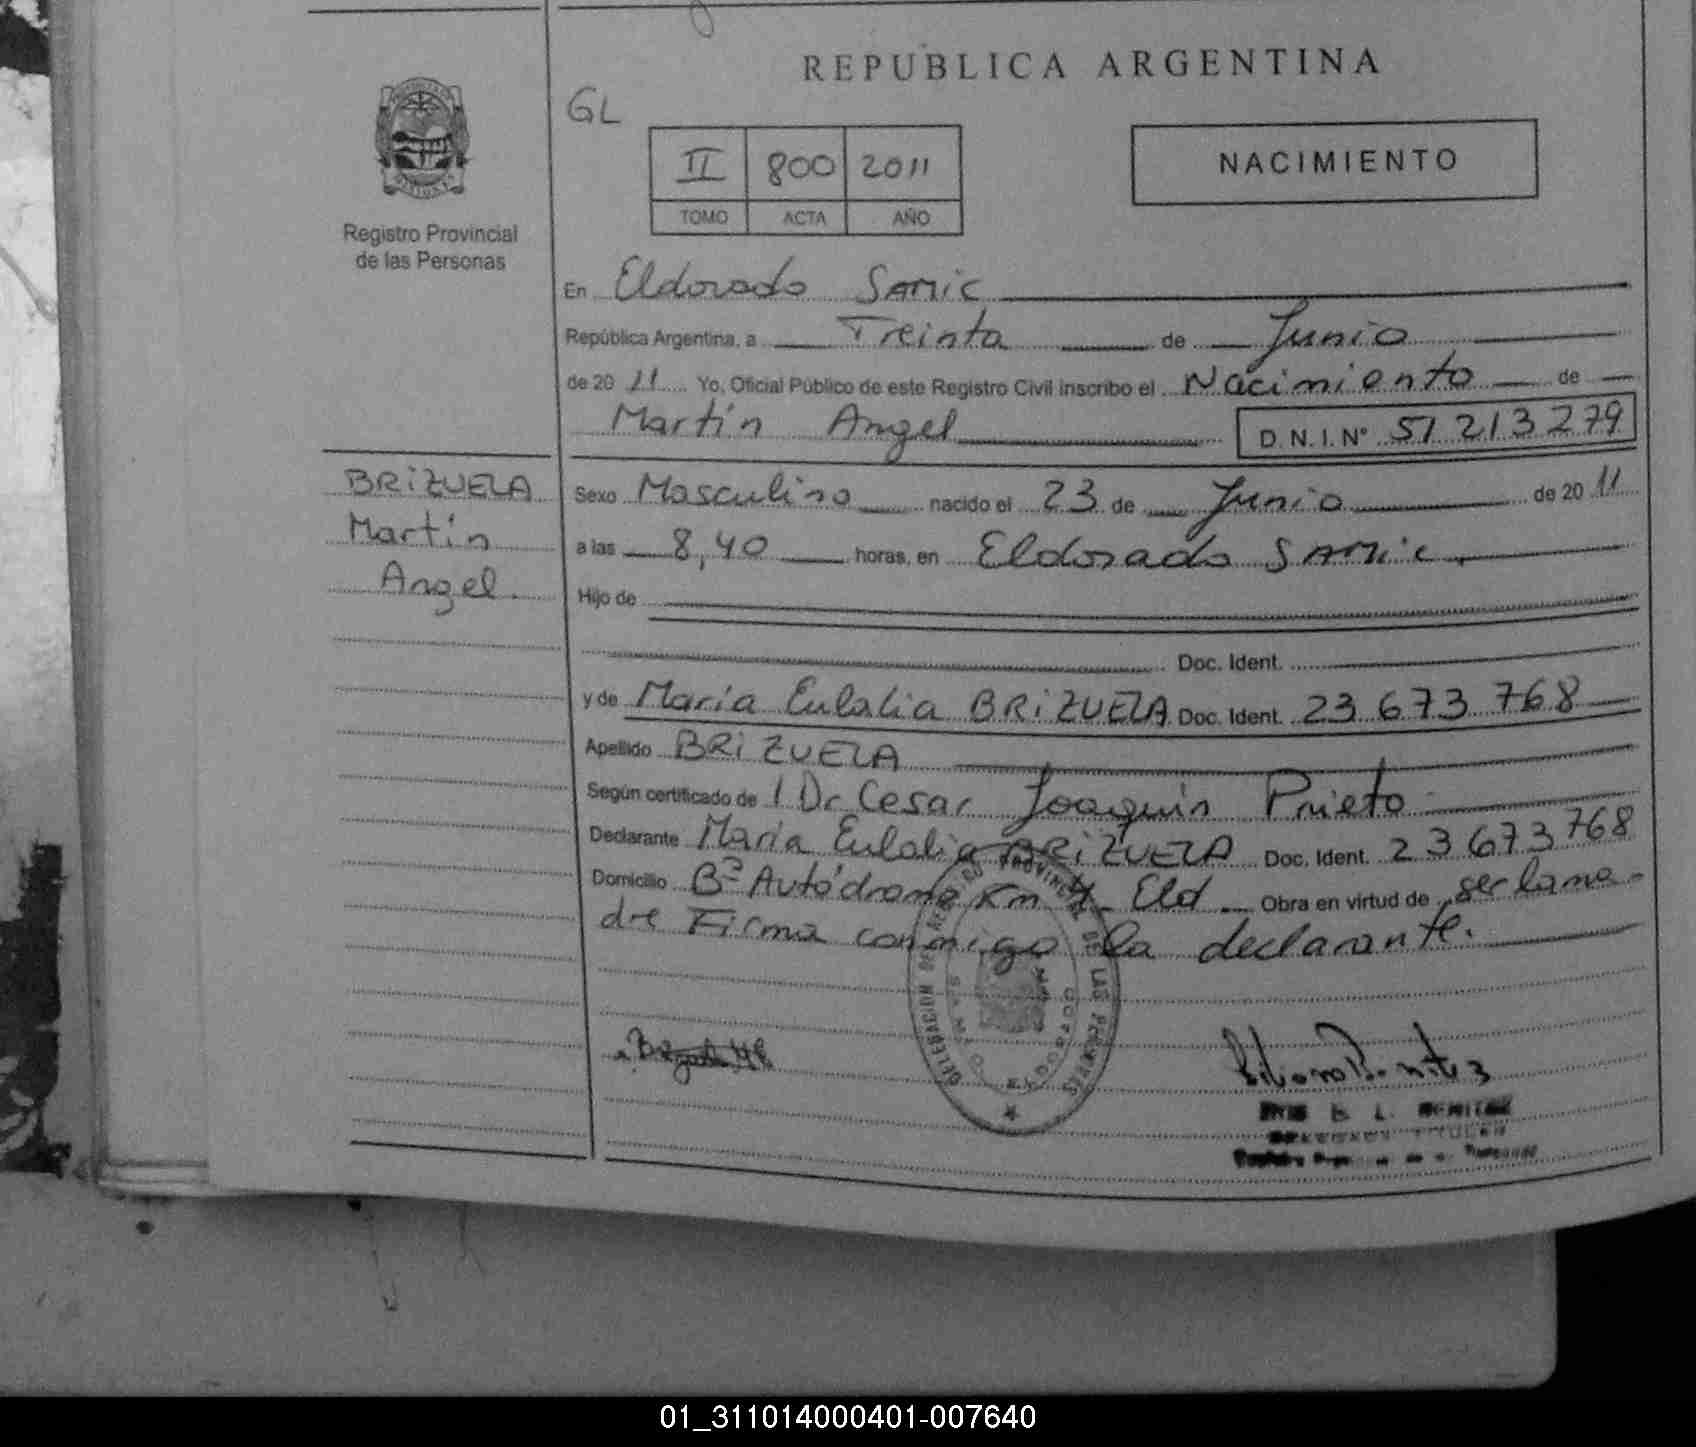 REPUBLICA ARGENTINA
GL
II 800 2011
TOMO ACTA AÑO
NACIMIENTO
Registro Provincial
de las Personas
En Eldorado SAMIC
República Argentina, a Treinta de Junio
de 2011 Yo, Oficial Público de este Registro Civil inscribo el Nacimiento de
Martín Angel D.N.I.Nº 51 213 279
BRIZUELA
Martín
Angel.
Sexo Masculino nacido el 23 de Junio de 2011
a las 8,40 horas, en Eldorado SAMIC
Hijo de
Doc. Ident.
y de María Eulalia BRIZUELA Doc. Ident. 23 673 768
Apellido BRIZUELA
Según certificado de l Dr Cesar Joaquín Prieto
Declarante María Eulalia BRIZUELA Doc. Ident. 23 673 768
Domicilio Bº Autódromo Km 4 Eld Obra en virtud de ser la ma-
dre Firma conmigo la declarante.
DELEGACION DEL REGISTRO PROVINCIAL DE LAS PERSONAS
01_311014000401-007640